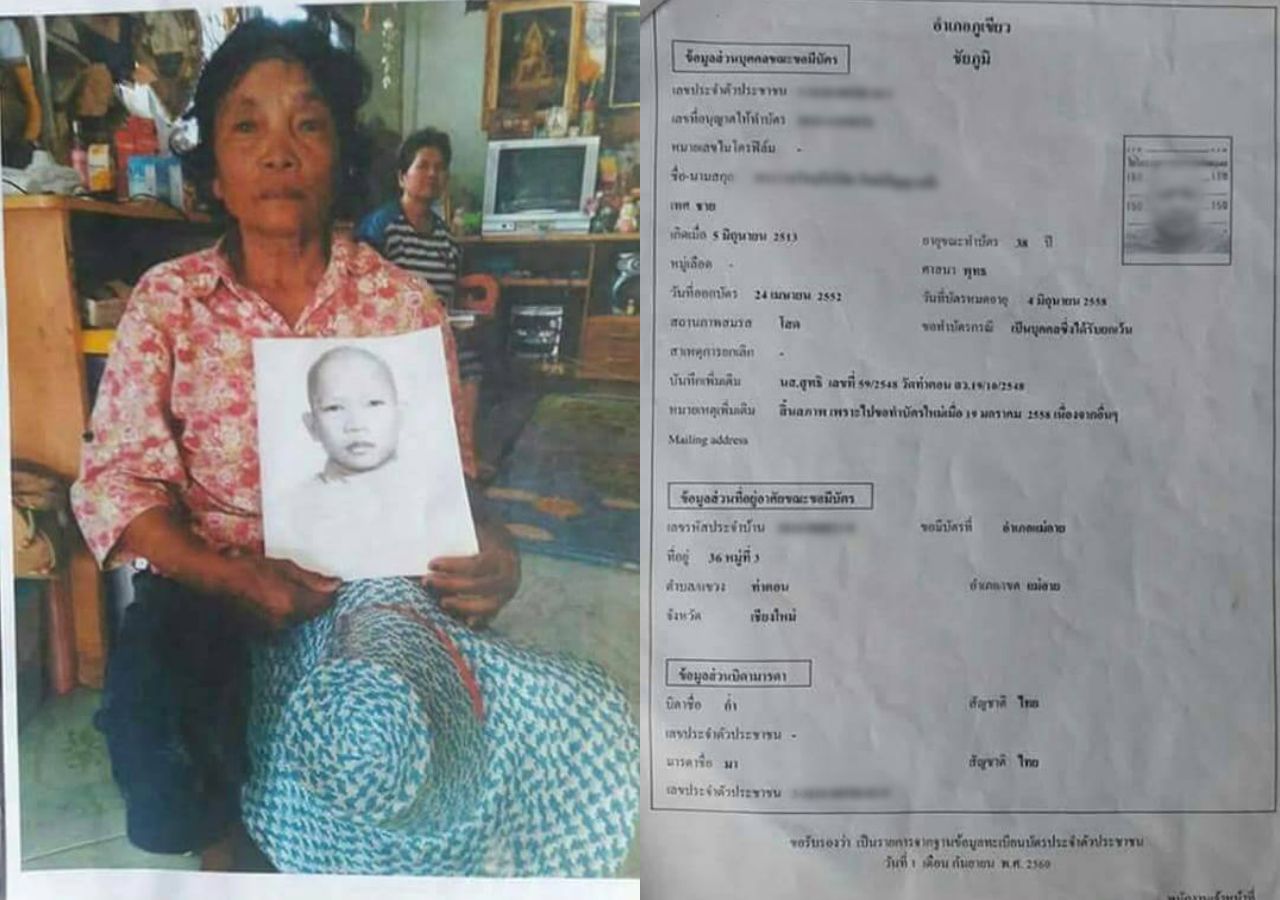 อำเภอภูเขียว
ข้อมูลส่วนบุคคลขณะขอมีบัตร ชัยภูมิ
เลขประจำตัวประชาชน
เลขที่อนุญาตให้ทำบัตร
หมายเลขไมโครฟิล์ม -
ชื่อ-นามสกุล
เพศ ชาย
เกิดเมื่อ 5 มิถุนายน 2513 อายุขณะทำบัตร 38 ปี
หมู่เลือด - ศาสนา พุทธ
วันที่ออกบัตร 24 เมษายน 2552 วันที่บัตรหมดอายุ 4 มิถุนายน 2558
สถานภาพสมรส โสด ขอทำบัตรกรณี เป็นบุคคลซึ่งได้รับยกเว้น
สาเหตุการยกเลิก -
บันทึกเพิ่มเติม นส.สุทธิ เลขที่ 59/2548 วัดท่าตอน ลว.19/10/2548
หมายเหตุเพิ่มเติม สิ้นสภาพ เพราะไปขอทำบัตรใหม่เมื่อ 19 มกราคม 2558 เนื่องจากอื่นๆ
Mailing address
ข้อมูลส่วนที่อยู่อาศัยขณะขอมีบัตร
เลขรหัสประจำบ้าน ขอมีบัตรที่ อำเภอแม่อาย
ที่อยู่ 36 หมู่ที่ 3
ตำบล/แขวง ท่าตอน อำเภอ/เขต แม่อาย
จังหวัด เชียงใหม่
ข้อมูลส่วนบิดามารดา
บิดาชื่อ ก่ำ สัญชาติ ไทย
เลขประจำตัวประชาชน -
มารดาชื่อ มา สัญชาติ ไทย
เลขประจำตัวประชาชน
ขอรับรองว่า เป็นรายการจากฐานข้อมูลทะเบียนบัตรประจำตัวประชาชน
วันที่ 1 เดือน กันยายน พ.ศ. 2560